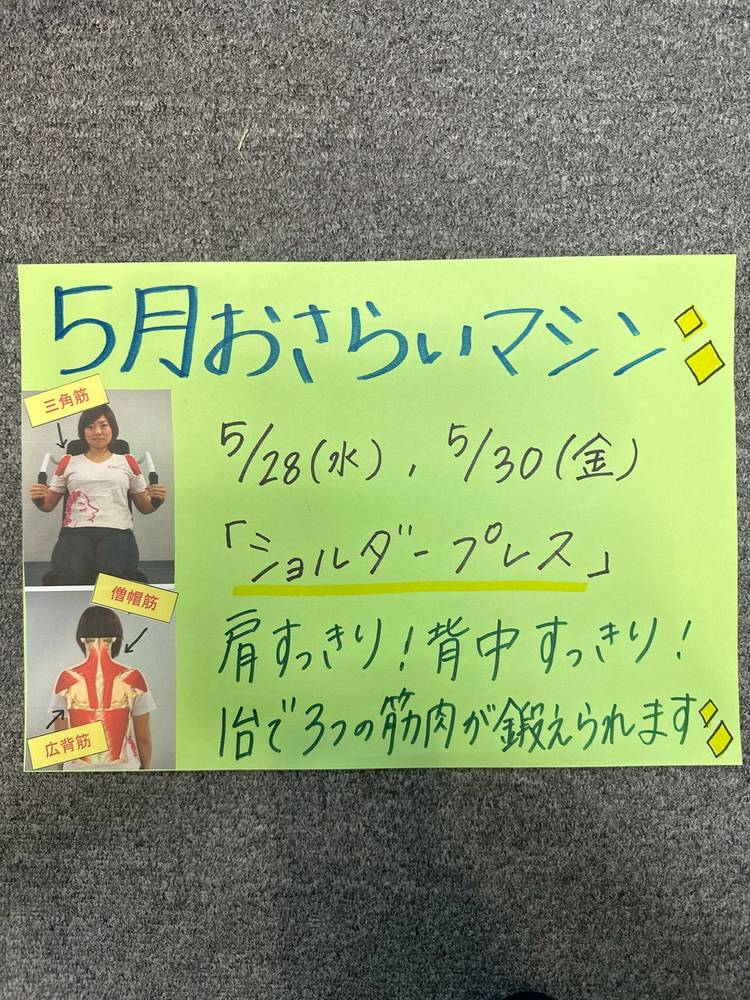 5月おさらいマシン
三角筋
5/28(水), 5/30(金)
「ショルダープレス」
僧帽筋
肩すっきり!背中すっきり!
1台で3つの筋肉が鍛えられます
広背筋